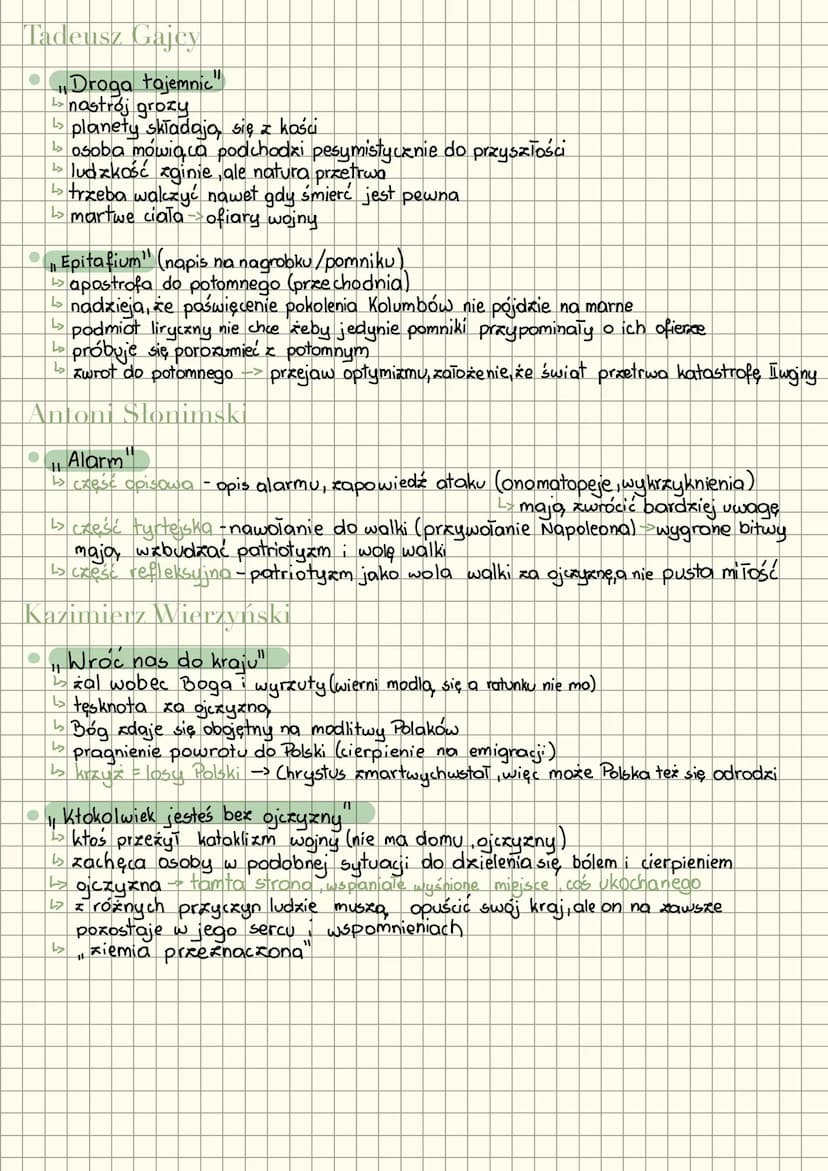 Tadeusz Gajcy
• „Droga tajemnic"
↳ nastrój grozy
↳ planety składają się z kości
↳ osoba mówiąca podchodzi pesymistycznie do przyszłości
↳ ludzkość zginie, ale natura przetrwa
↳ trzeba walczyć nawet gdy śmierć jest pewna
↳ martwe ciała → ofiary wojny
• „Epitafium" (napis na nagrobku/pomniku)
↳ apostrofa do potomnego (przechodnia)
↳ nadzieja, że poświęcenie pokolenia Kolumbów nie pójdzie na marne
↳ podmiot liryczny nie chce żeby jedynie pomniki przypominały o ich ofierze
↳ próbuje się porozumieć z potomnym
↳ zwrot do potomnego → przejaw optymizmu, założenie, że świat przetrwa katastrofę II wojny
Antoni Słonimski
• „Alarm"
↳ część opisowa - opis alarmu, zapowiedź ataku (onomatopeje, wykrzyknienia)
↳ mają zwrócić bardziej uwagę
↳ część tyrtejska - nawołanie do walki (przywołanie Napoleona) → wygrane bitwy
mają wzbudzać patriotyzm i wolę walki
↳ część refleksyjna - patriotyzm jako wola walki za ojczyznę, a nie pusta miłość
Kazimierz Wierzyński
• „Wróć nas do kraju"
↳ żal wobec Boga i wyrzuty (wierni modlą się a ratunku nie ma)
↳ tęsknota za ojczyzną
↳ Bóg zdaje się obojętny na modlitwy Polaków
↳ pragnienie powrotu do Polski (cierpienie na emigracji)
↳ krzyż = losy Polski → Chrystus zmartwychwstał, więc może Polska też się odrodzi
• „Ktokolwiek jesteś bez ojczyzny"
↳ ktoś przeżył kataklizm wojny (nie ma domu, ojczyzny)
↳ zachęca osoby w podobnej sytuacji do dzielenia się bólem i cierpieniem
↳ ojczyzna → tamta strona, wspaniałe wyśnione miejsce, coś ukochanego
↳ z różnych przyczyn ludzie muszą opuścić swój kraj, ale on na zawsze
pozostaje w jego sercu i wspomnieniach
↳ „ziemia przeznaczona"